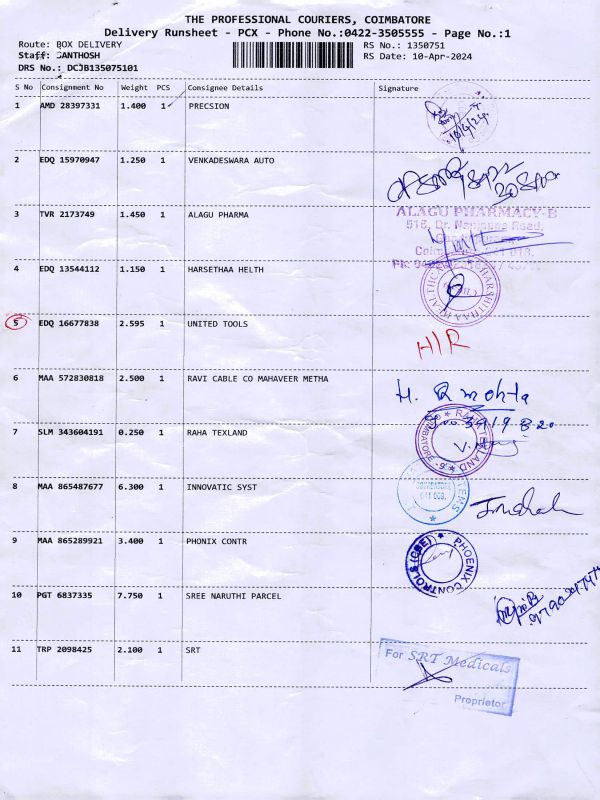 THE PROFESSIONAL COURIERS, COIMBATORE
Delivery Runsheet - PCX - Phone No.:0422-3505555 - Page No.:1
Route: BOX DELIVERY RS No.: 1350751
Staff: SANTHOSH RS Date: 10-Apr-2024
DRS No.: DCJB135075101
S No Consignment No Weight PCS Consignee Details Signature
1 AMD 28397331 1.400 1 PRECSION
10/4/24
2 EDQ 15970947 1.250 1 VENKADESWARA AUTO
3 TVR 2173749 1.450 1 ALAGU PHARMA
ALAGU PHARMACY-B
4 EDQ 13544112 1.150 1 HARSETHAA HELTH
5 EDQ 16677838 2.595 1 UNITED TOOLS
H/R
6 MAA 572830818 2.500 1 RAVI CABLE CO MAHAVEER METHA
H. R mehta
7 SLM 343604191 0.250 1 RAHA TEXLAND
8 MAA 865487677 6.300 1 INNOVATIC SYST
9 MAA 865289921 3.400 1 PHONIX CONTR
PHOENIX CONTROLS (CBE)
10 PGT 6837335 7.750 1 SREE NARUTHI PARCEL
11 TRP 2098425 2.100 1 SRT
For SRT Medicals
Proprietor